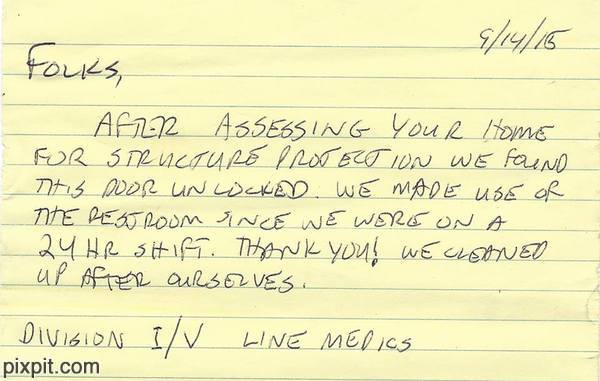 9/14/15
FOLKS,
AFTER ASSESSING YOUR HOME
FOR STRUCTURE PROTECTION WE FOUND
THIS DOOR UNLOCKED. WE MADE USE OF
THE RESTROOM SINCE WE WERE ON A
24 HR SHIFT. THANK YOU! WE CLEANED
UP AFTER OURSELVES.
DIVISION I/V LINE MEDICS
pixpit.com